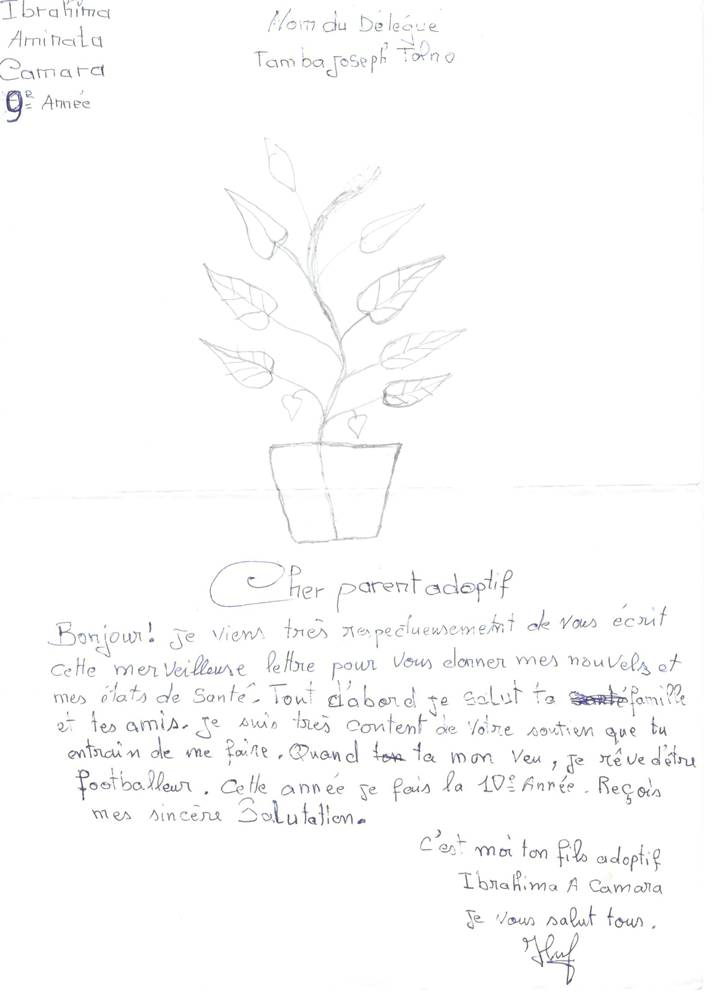 Ibrahima
Aminata
Camara
9e Année
Nom du Délégué
Tamba Joseph Tolno
Cher parent adoptif
Bonjour! je viens très respectueusement de vous écrit
cette merveilleuse lettre pour vous donner mes nouvels et
mes états de Santé. Tout d'abord je salut ta famille
et tes amis. je suis très content de votre soutien que tu
entrain de me faire. Quand ta mon veu, je rêve d'être
footballeur. Cette année je fais la 10e Année. Reçois
mes sincère Salutation.
C'est moi ton fils adoptif
Ibrahima A Camara
je vous salut tous.